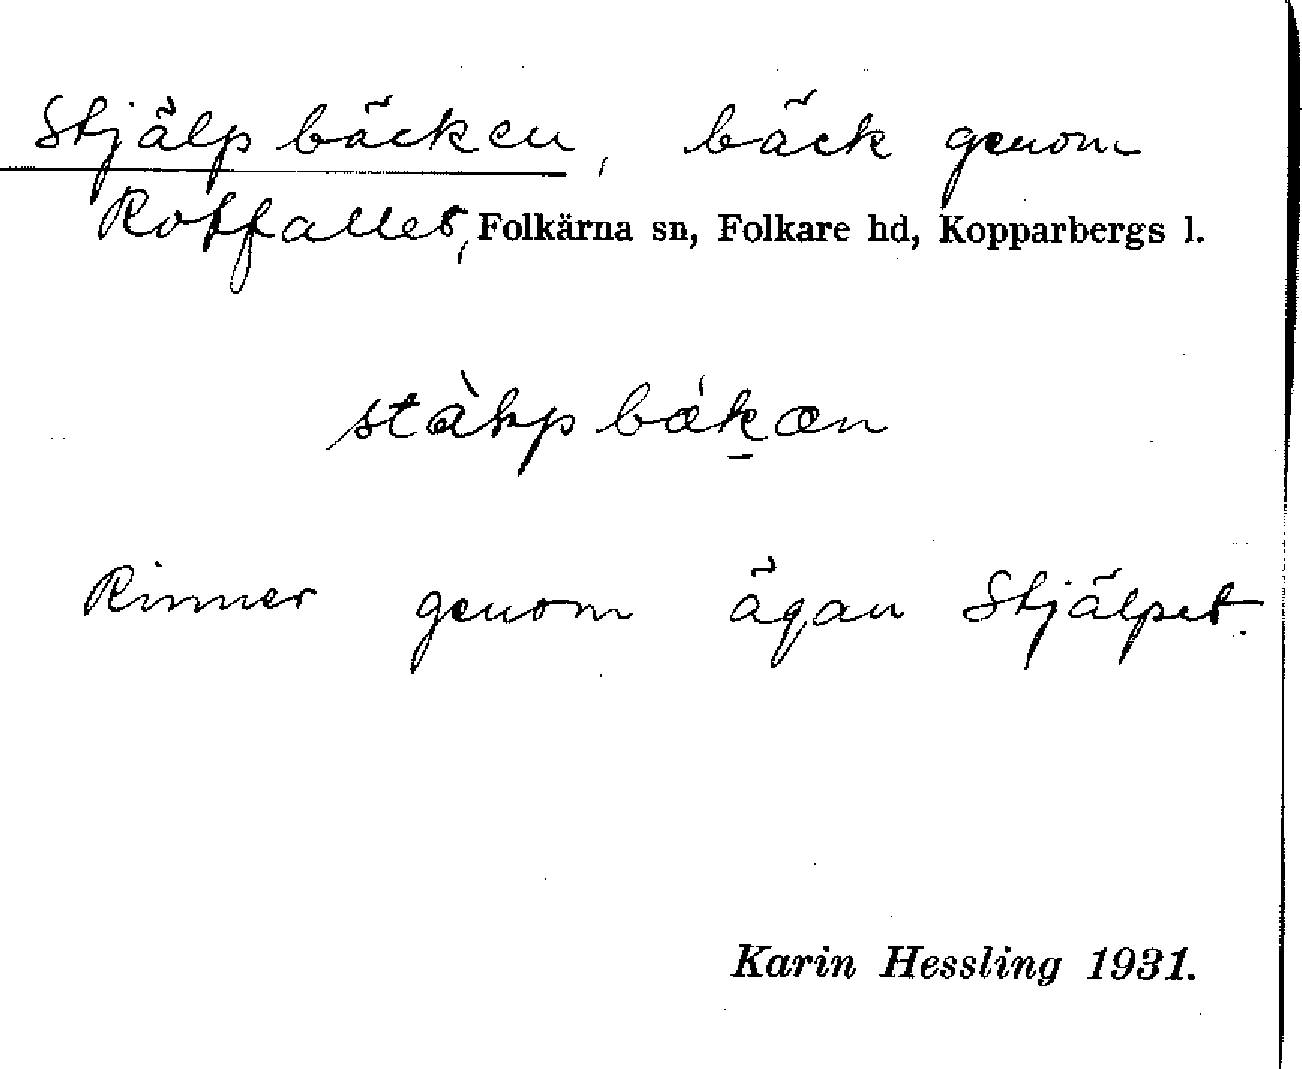 Stjälpbäcken, bäck genom
Rotfallet, Folkärna sn, Folkare hd, Kopparbergs l.
Rinner genom ägan Stjälpet.
Karin Hessling 1931.